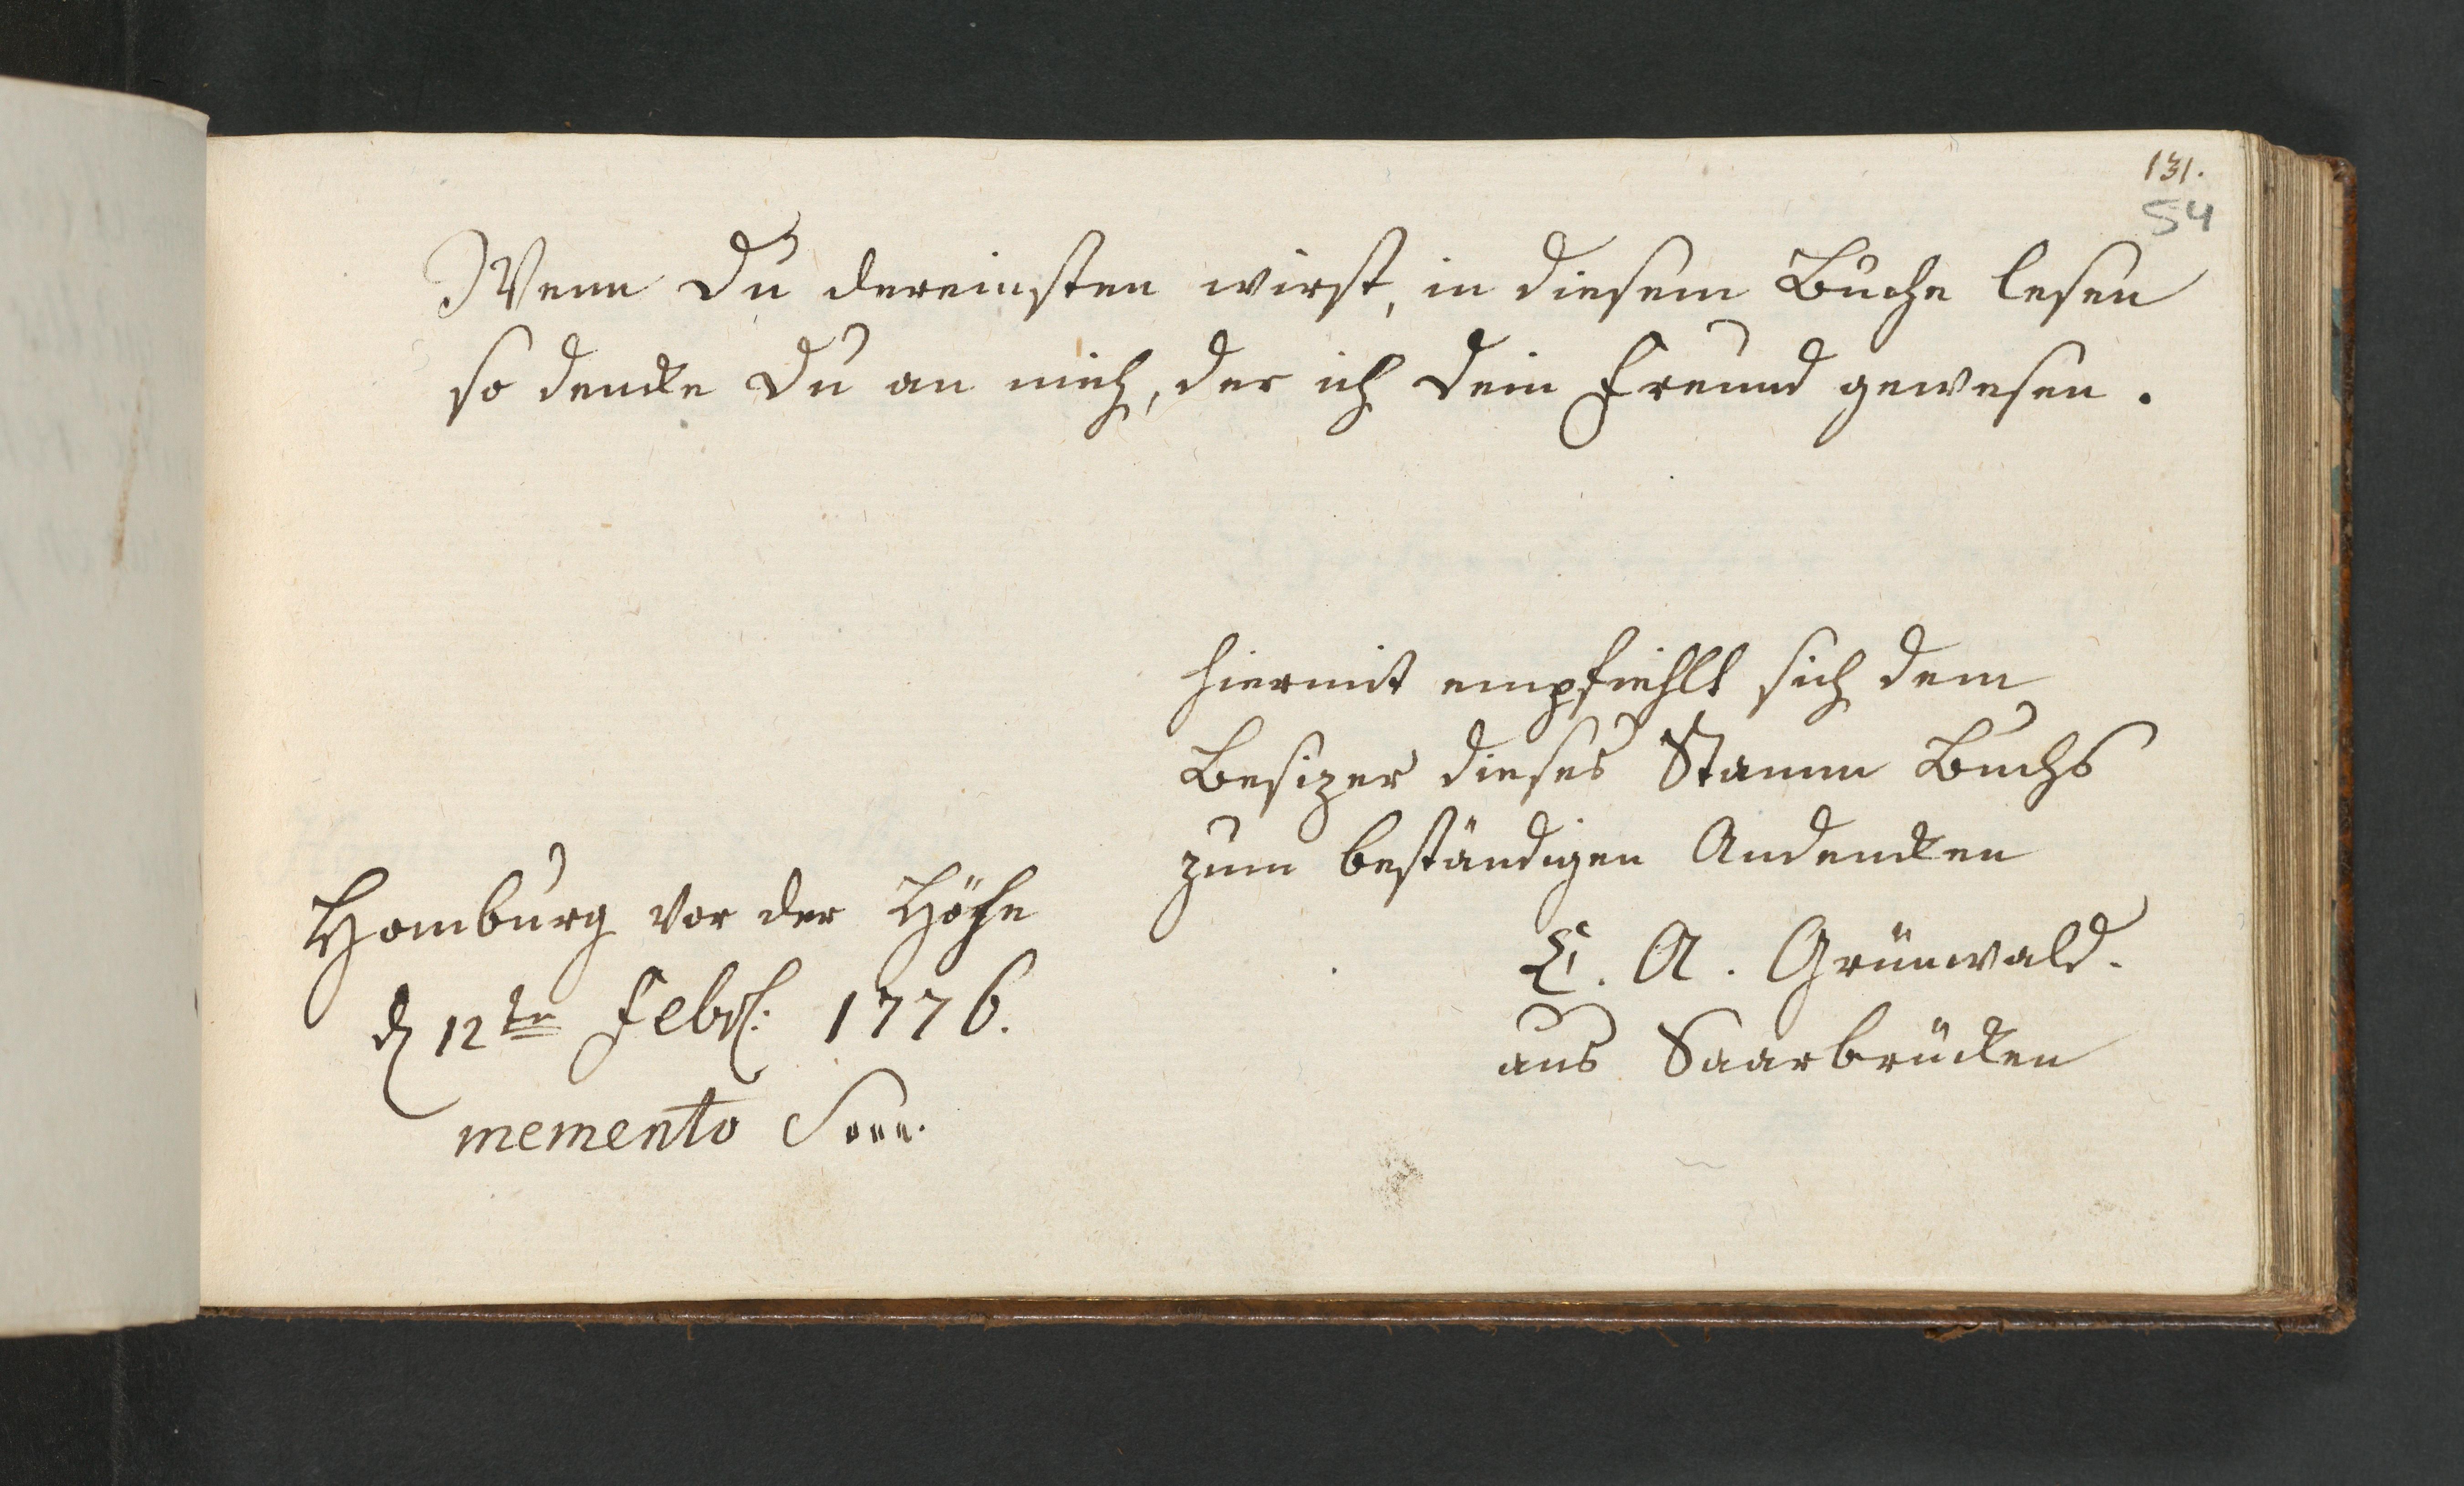 131.
54
Wenn Du dereinsten wirst, in diesem Buche lesen
so dencke Du an mich, der ich Dein Freund gewesen.
hiermit empfiehlt sich dem
Besizer dieses Stamm Buchs
zum beständigen Andencken
Homburg vor der Höhe
d 12te Febr: 1776.
memento
A. Grünwald.
aus Saarbrücken